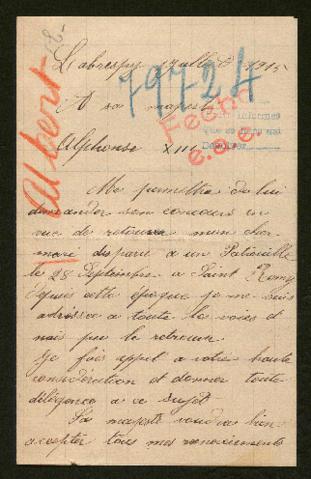 Albert
Labrespy juillet 1915
79724
A sa majesté
Fecho
e.o.e.
Alphonse XIII
Me permettre de lui
demander son concours en
vue de retrouver mon cher
mari disparu a un Patrouille
le 28 Septembre a Saint Remy
depuis cette époque je me suis
adréssée a toute les voies et
nais pu le retrouver.
Je fais appel a votre haute
considération et donner toute
déligence a ce sujet
Sa majesté voudra bien
accepter tous mes remerciements